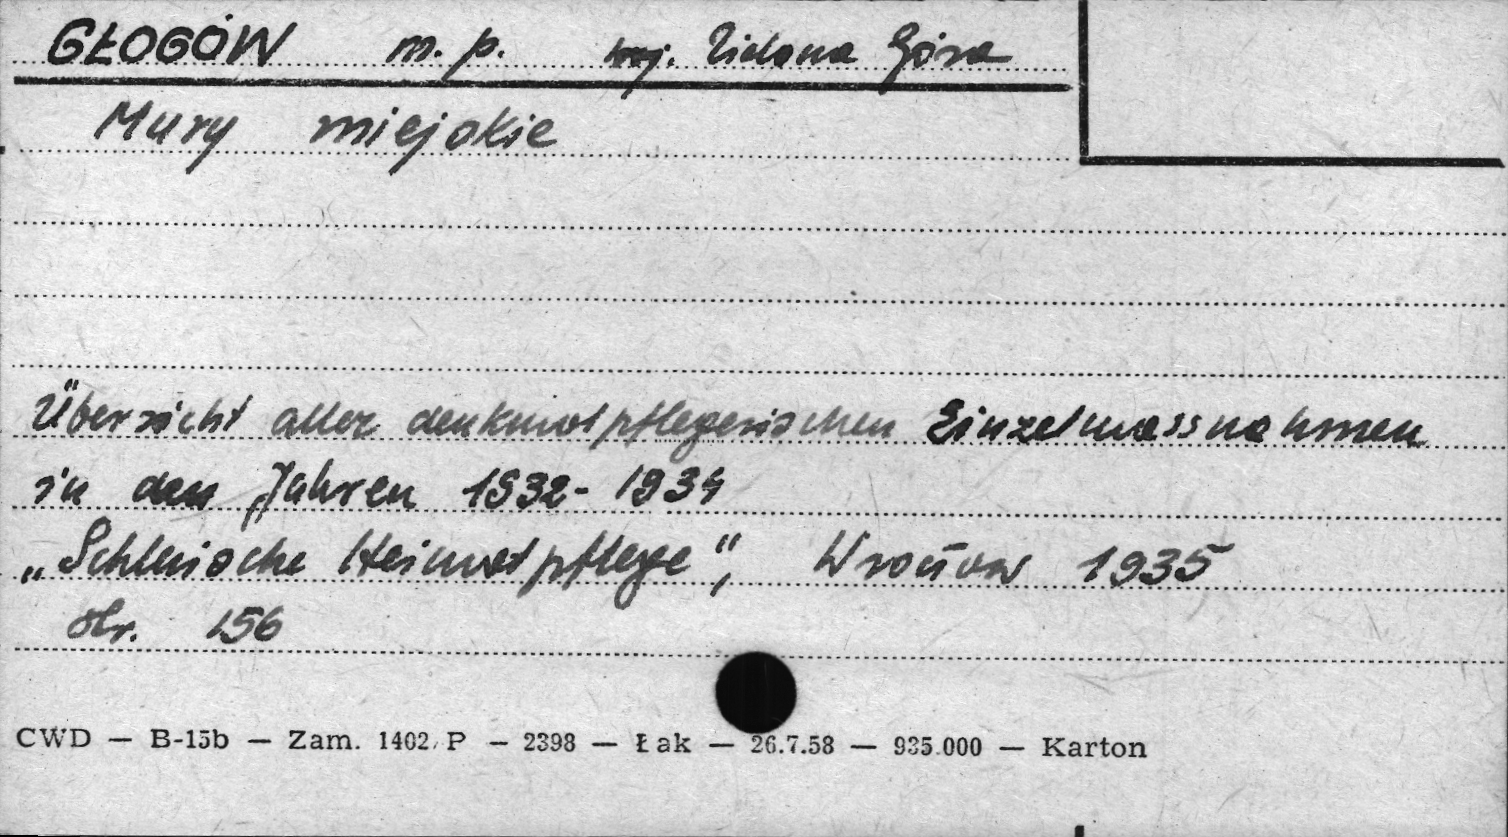 GŁOGÓW m. p. woj. Zielona Góra
Mury miejskie
Übersicht aller denkmalpflegerischen Einzelmassnahmen
in den Jahren 1932-1934
„Schlesische Heimatpflege", Wrocław 1935
str. 156
CWD — B-15b — Zam. 1402/P — 2398 — Łak — 26.7.58 — 935.000 — Karton